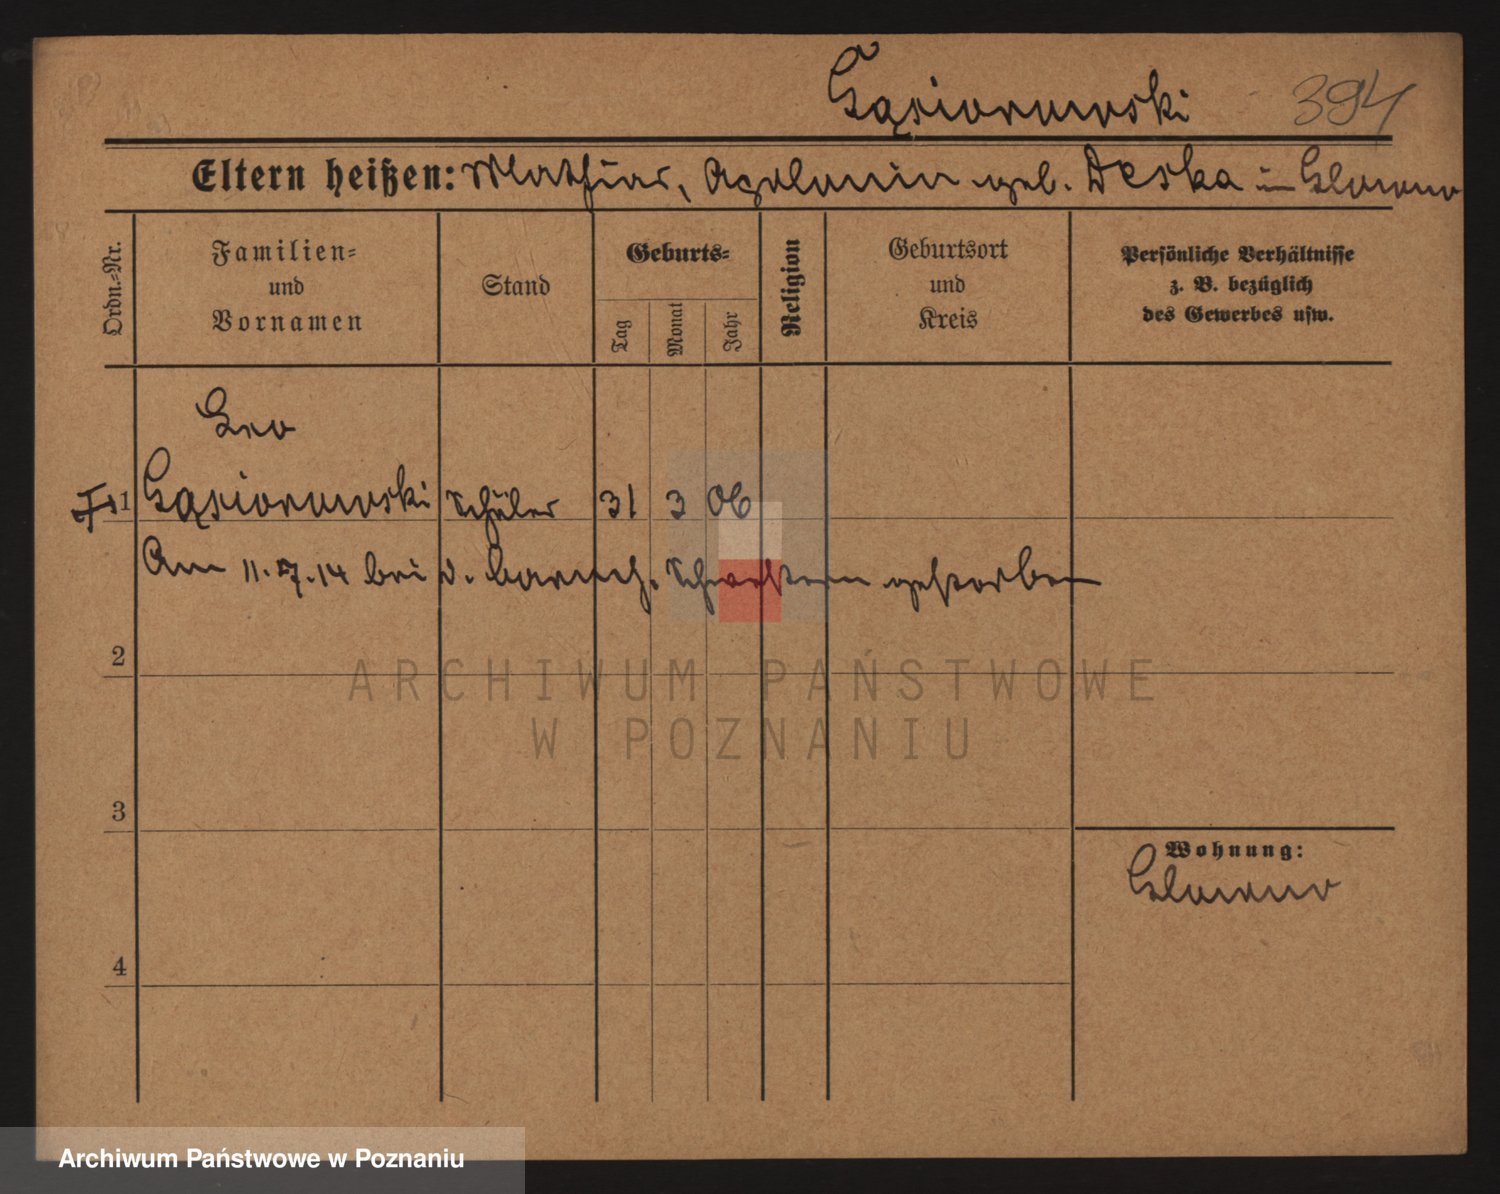 Gąsiorowski 394
Eltern heißen: Mathias, Apolonia geb. Deska in Glowno
Ordn.=Nr.
Familien=
und
Vornamen
Stand
Geburts=
Tag
Monat
Jahr
Religion
Geburtsort
und
Kreis
Persönliche Verhältnisse
z. B. bezüglich
des Gewerbes usw.
Leo
1 Gąsiorowski Schüler 31 3 06
Am 11.7.14 bei d. barmh. Schwestern gestorben
2
ARCHIWUM PAŃSTWOWE
W POZNANIU
3
Wohnung:
Glowno
4
Archiwum Państwowe w Poznaniu